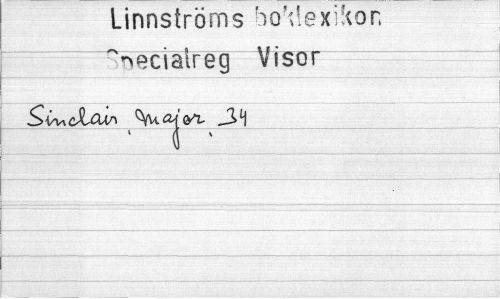 Linnströms boklexikon
Specialreg Visor
Sinclair, Major, 34